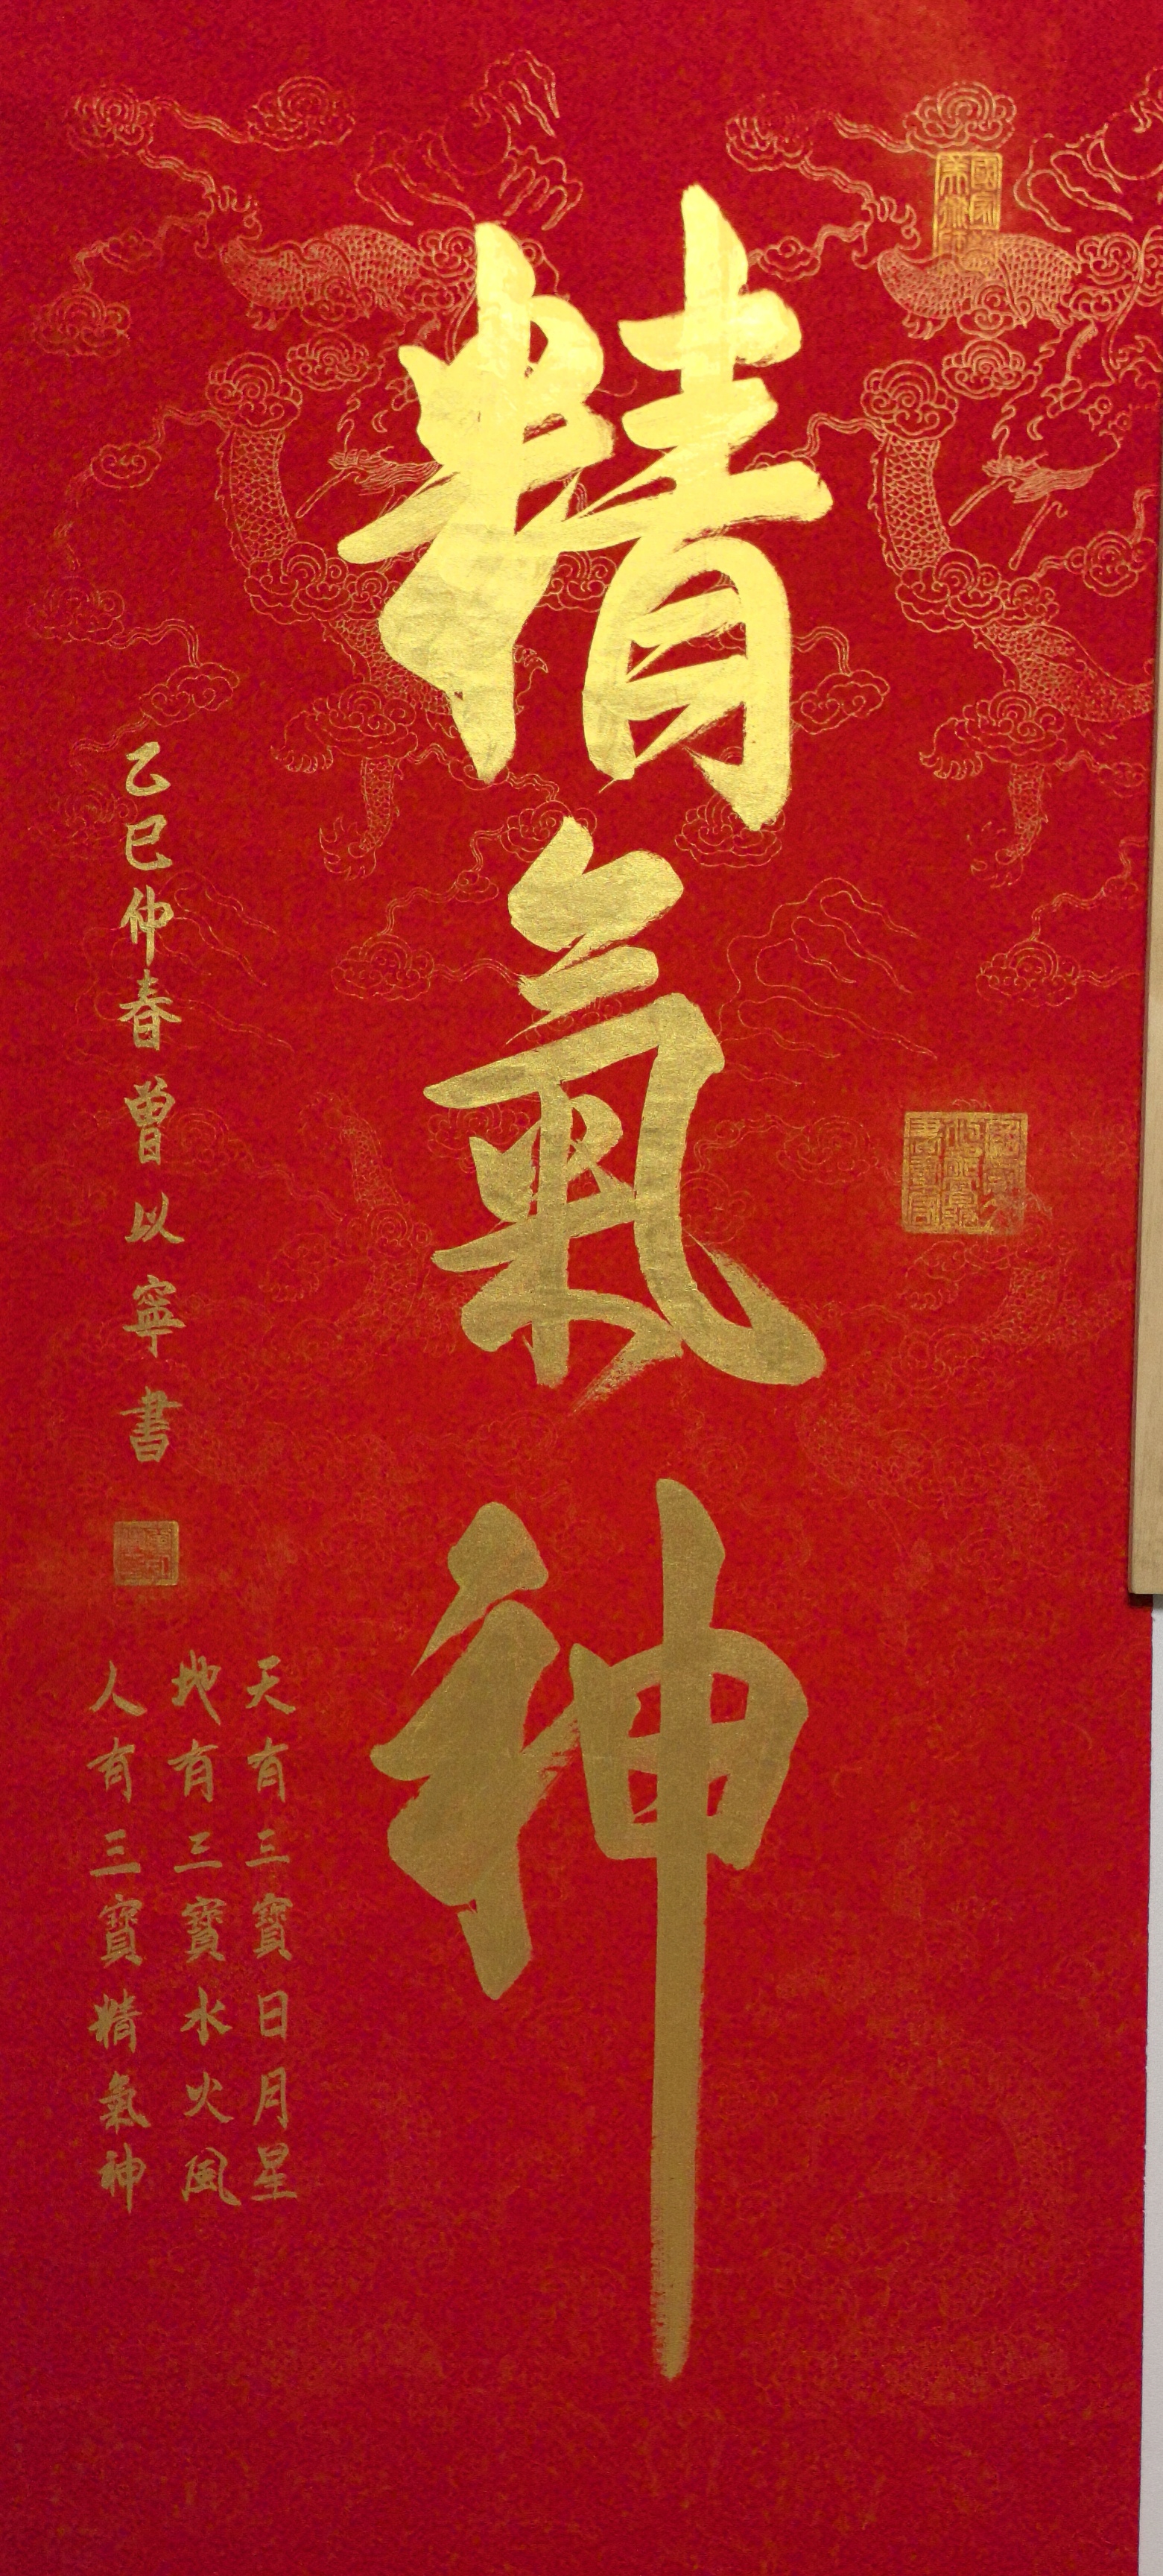 精氣神
乙巳仲春曾以寧書
天有三寶日月星
地有三寶水火風
人有三寶精氣神